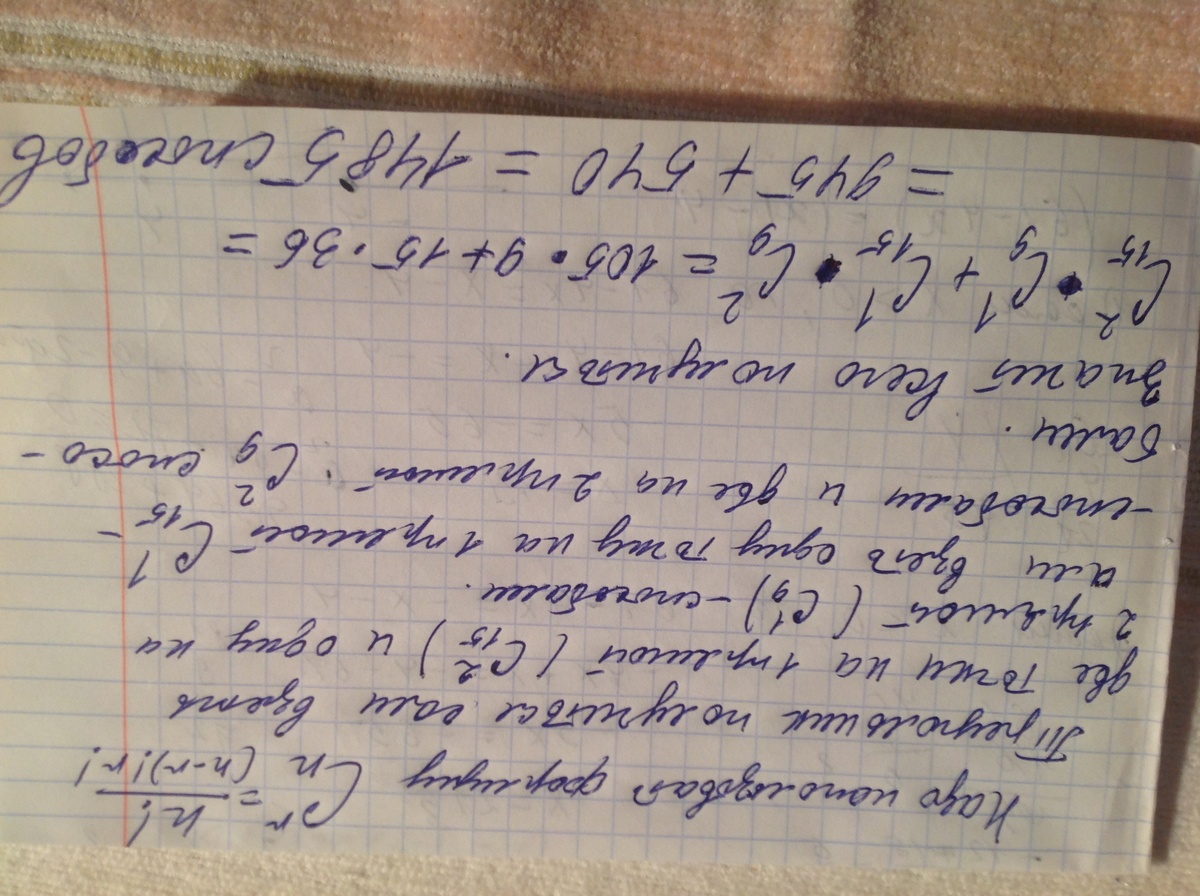 Надо использоват формулу C_n^r = n!/(n-r)!r!
Треугольник получиться если взять
две точки на 1 прямой (C_15^2) и одну на
2 прямой (C_9^1) - способами.
или взеть одну точку на 1 прямой C_15^1 -
- способами и две на 2 прямой. C_9^2 спосо -
бами.
Значит всего получиться.
C_15^2 • C_9^1 + C_15^1 • C_9^2 = 105 • 9 + 15 • 36 =
= 945 + 540 = 1485 способов